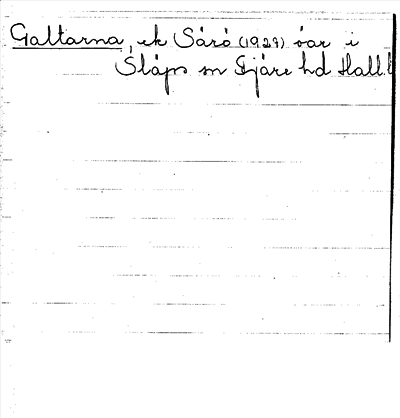 Galtarna, ek Särö (1929) öar i
Släps sn Fjäre hd Hall.